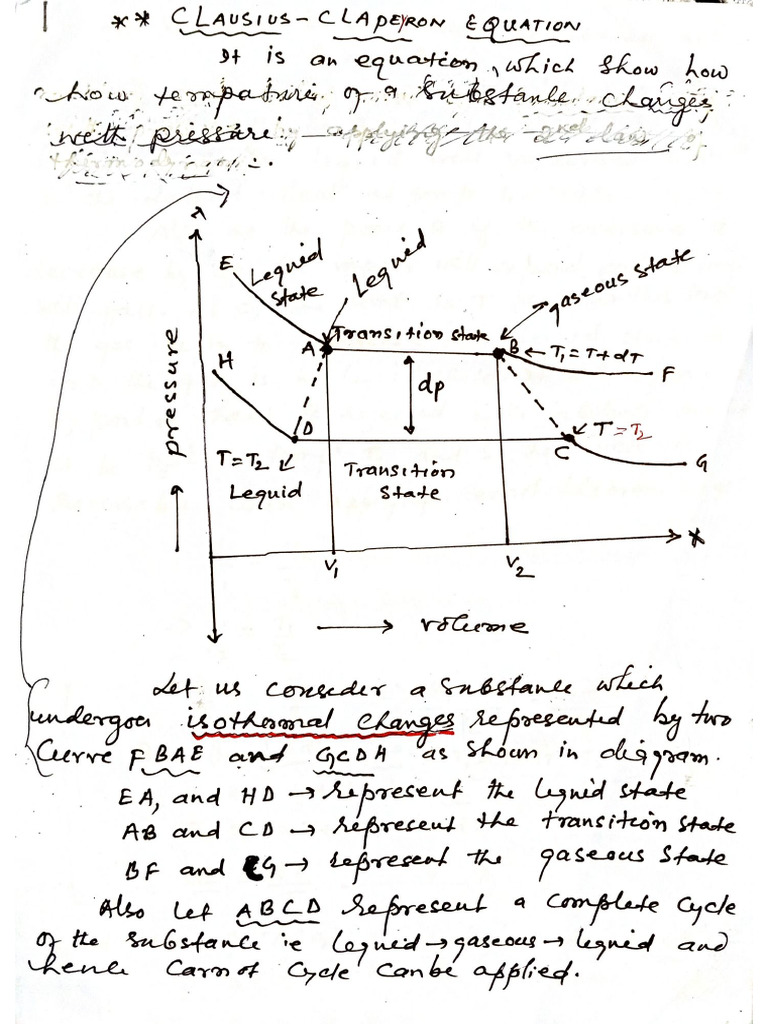 ** CLAUSIUS-CLAPEYRON EQUATION
It is an equation, which show how
how tempature of a substance changes
with pressure, applying the 2nd law of
E
Lequid
State
Lequid
gaseous state
Transition state
A
B
T₁ = T+dT
H
F
dp
pressure
D
T = T₂
C
G
T=T₂
Lequid
Transition
State
x
V₁
V₂
volume
Let us consider a substance which
undergoes isothermal changes represented by two
Curve FBAE and GCDH as shown in diagram.
EA, and HD → represent the lequid state
AB and CD → represent the transition state
BF and CG → represent the gaseous state
Also let ABCD represent a complete cycle
of the substance ie lequid → gaseous → lequid and
hence Carnot Cycle can be applied.